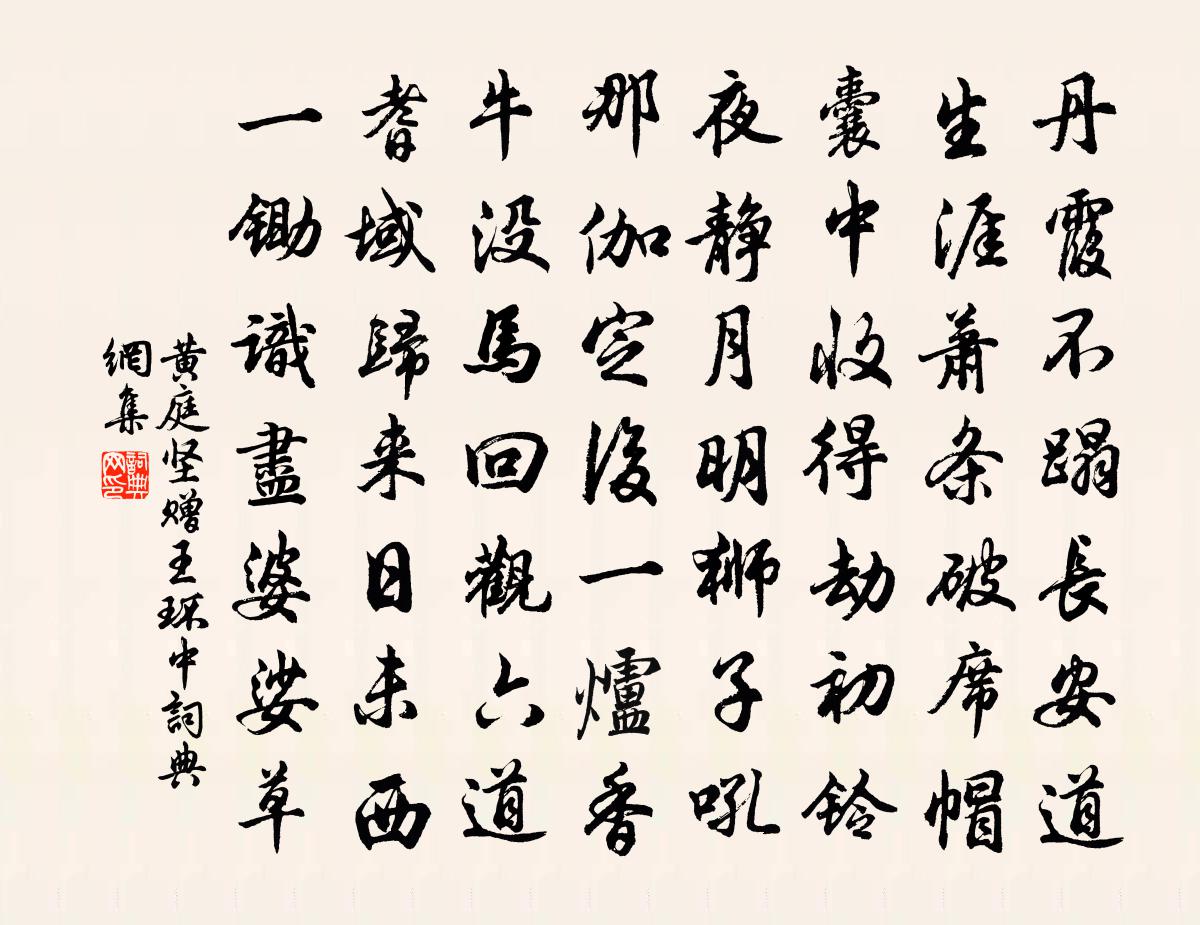 丹霞不蹋長安道
生涯蕭条破席帽
囊中收得劫初鈴
夜静月明獅子吼
那伽定後一爐香
牛没馬回觀六道
耆域歸来日未西
一鋤識盡婆娑草
黄庭坚赠王环中詞典
網集
詞典网